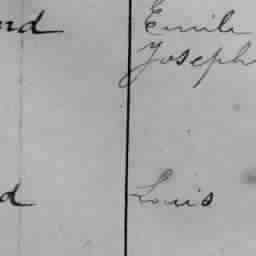 Emile
Joseph
Louis